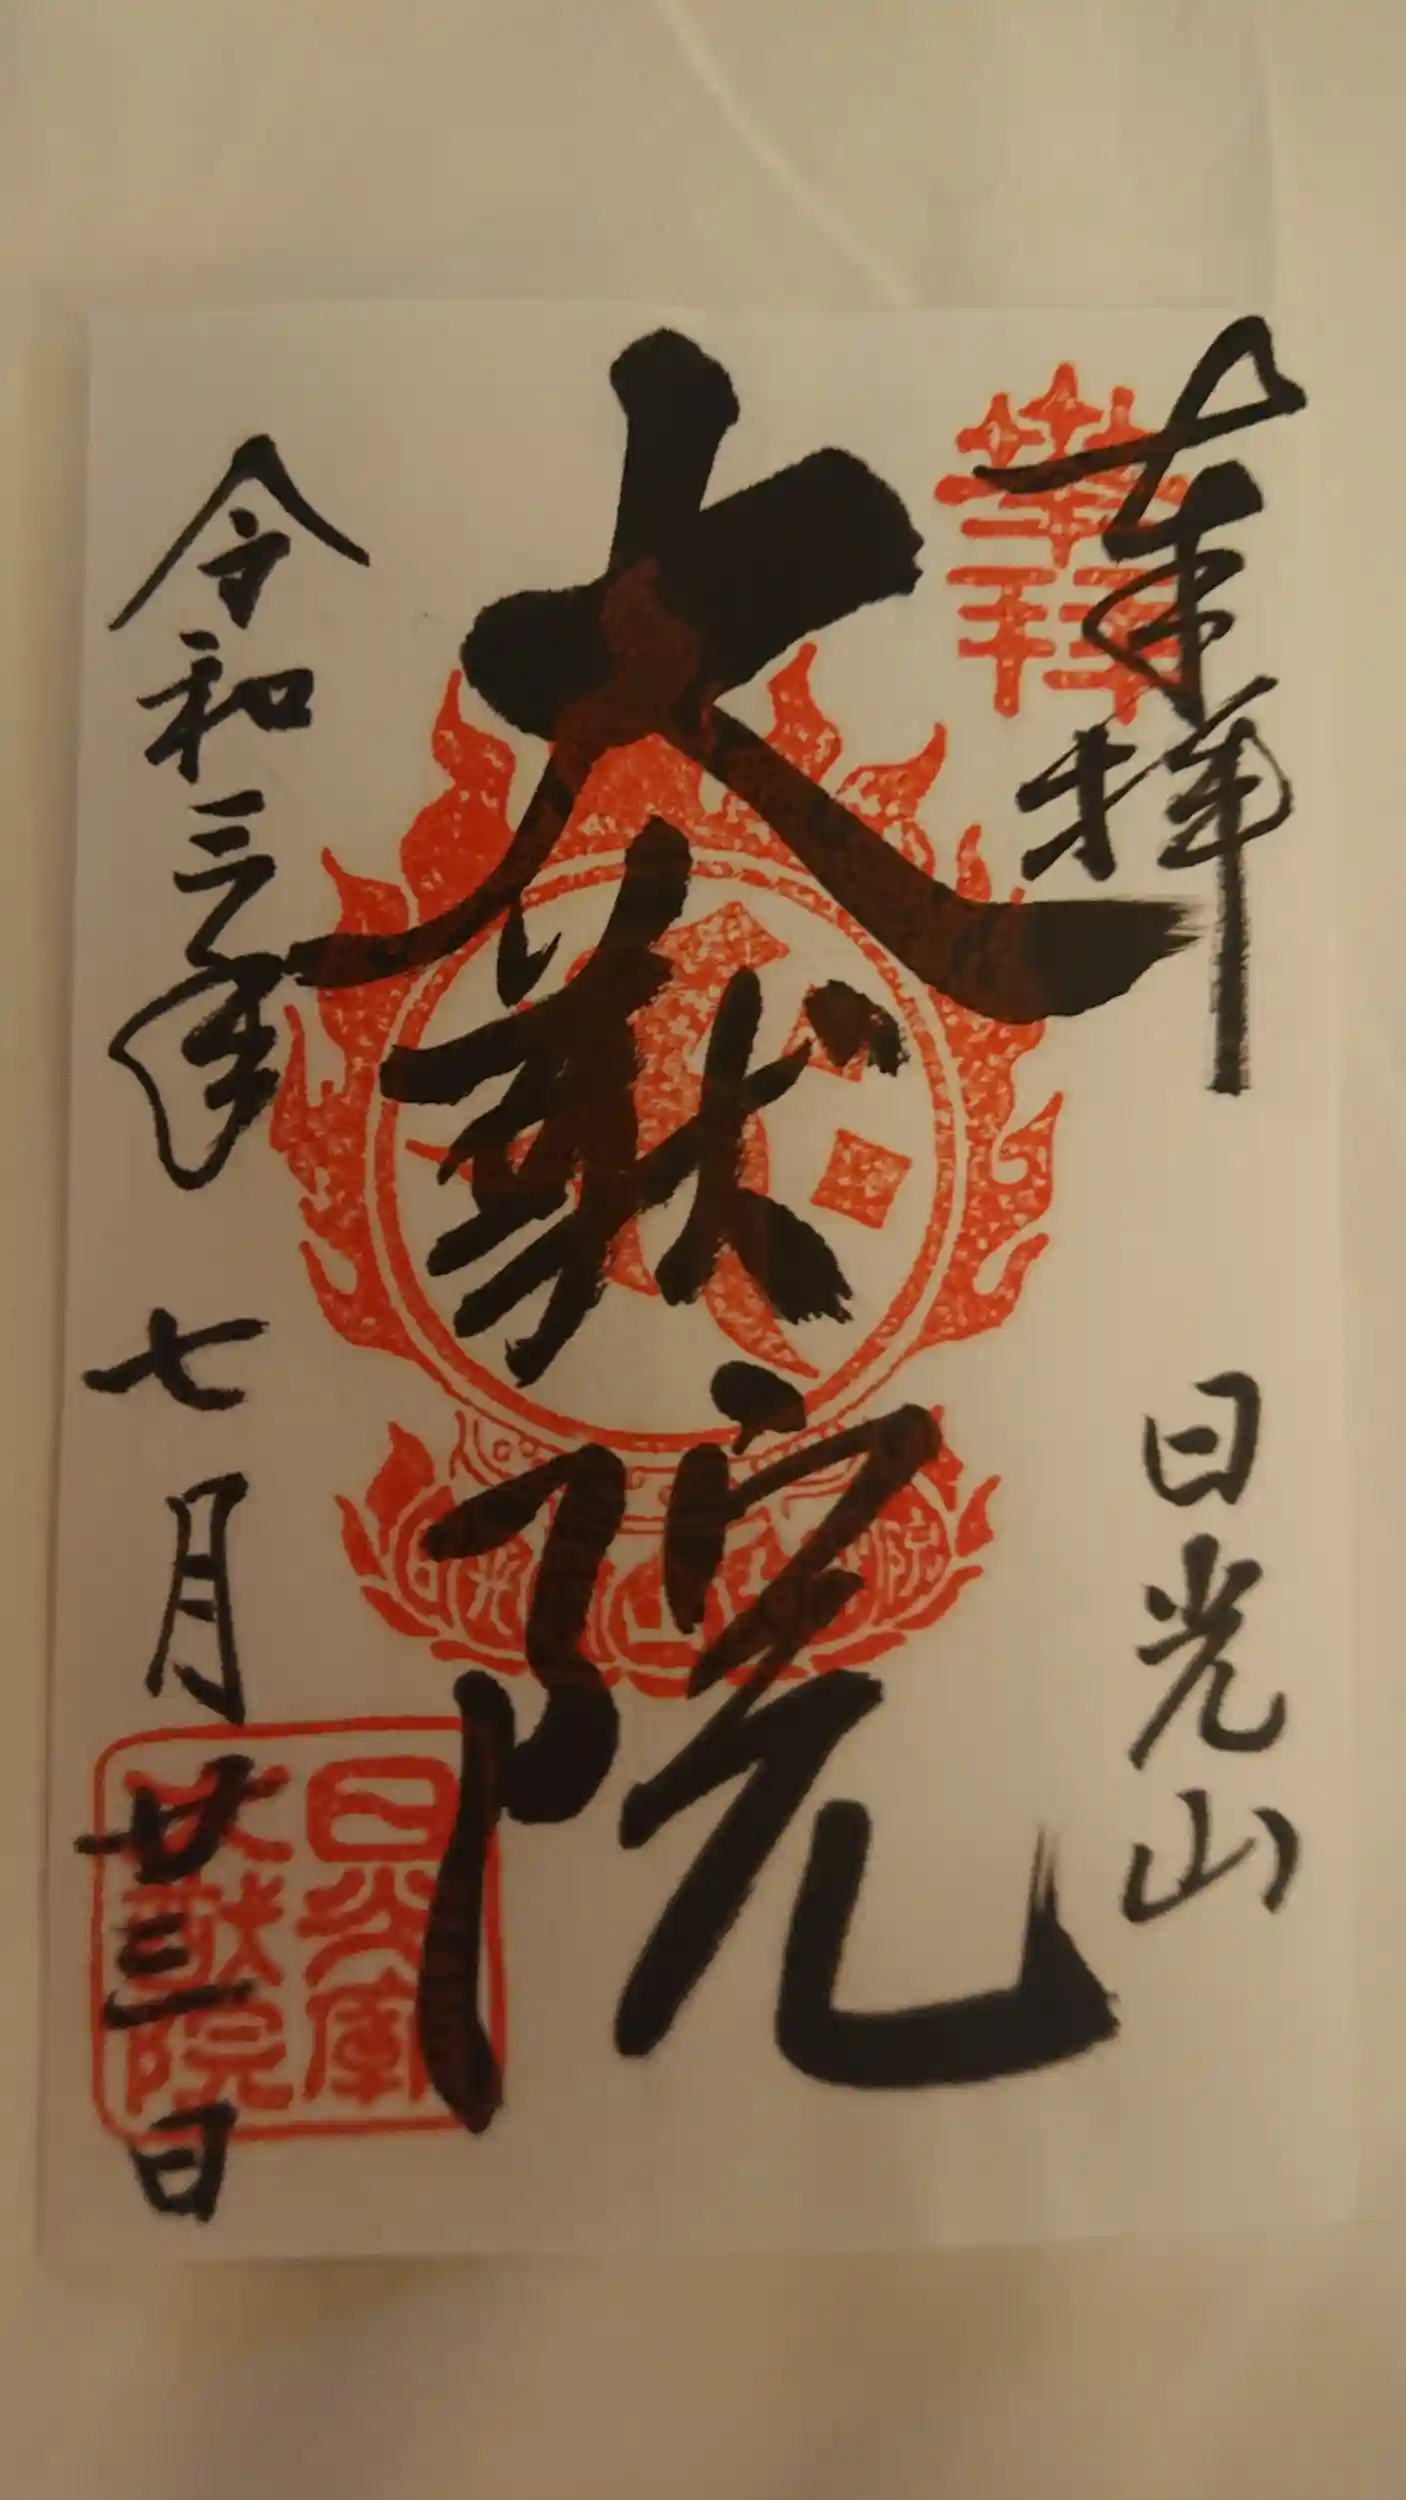 奉拝
日光山
大猷院
令和三年七月廿三日
日光廟
大猷院